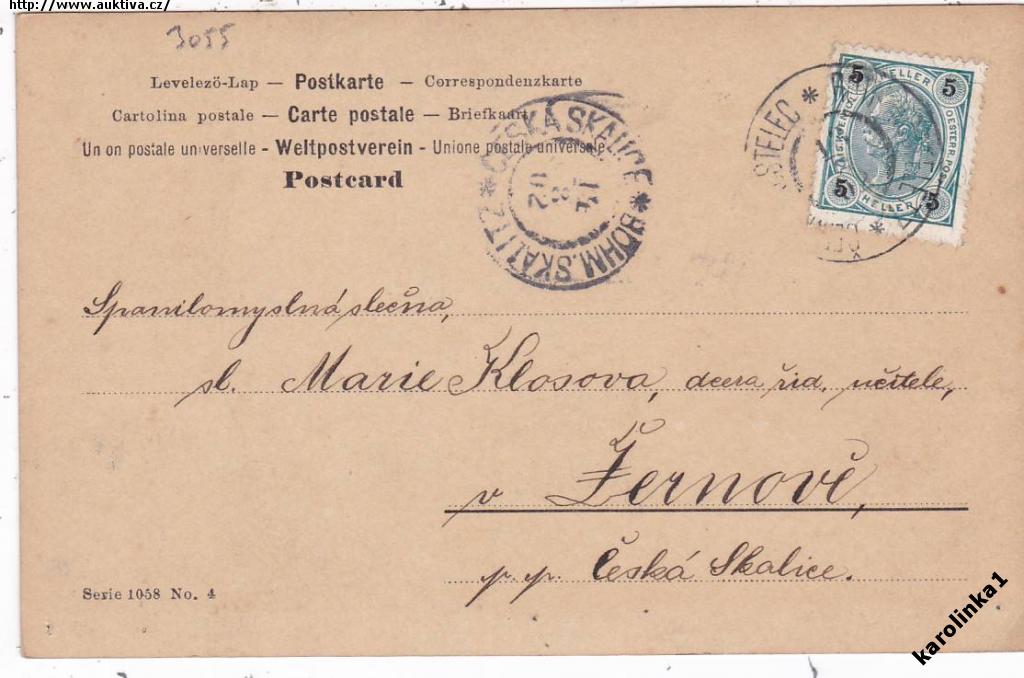 http://www.auktiva.cz/
3055
Levelező-Lap — Postkarte — Correspondenzkarte
Cartolina postale — Carte postale — Briefkaart
Un on postale universelle - Weltpostverein - Unione postale universale
Postcard
ČESKÁ SKALICE * BÖHM. SKALITZ *
5 HELLER 5
OESTERR. POST
5 HELLER 5
STELEC *
Spanilomyslná slečna,
sl. Marie Klosova, dcera říd. učitele,
v Žernově,
p. p. Česká Skalice.
Serie 1058 No. 4
karolinka1